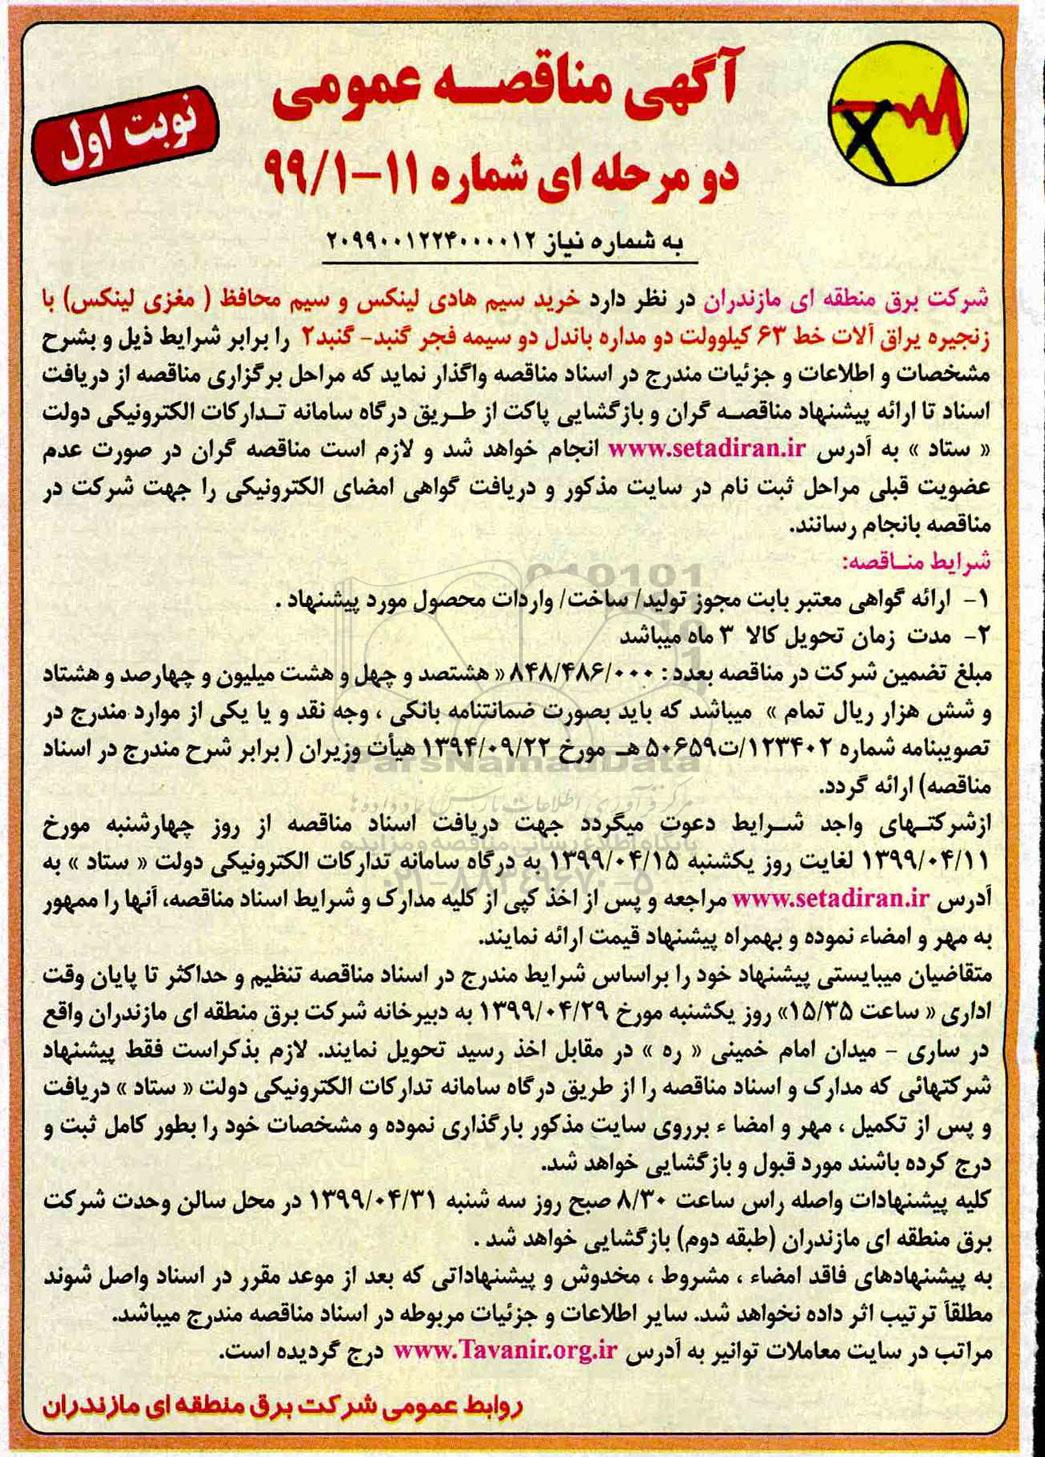 آگهی مناقصه عمومی
نوبت اول
دو مرحله ای شماره ۱۱-۹۹/۱
به شماره نیاز ۲۰۹۹۰۰۱۲۲۴۰۰۰۰۱۲
شرکت برق منطقه ای مازندران در نظر دارد خرید سیم هادی لینکس و سیم محافظ ( مغزی لینکس) با
زنجیره یراق آلات خط ۶۳ کیلوولت دو مداره باندل دو سیمه فجر گنبد- گنبد۲ را برابر شرایط ذیل و بشرح
مشخصات و اطلاعات و جزئیات مندرج در اسناد مناقصه واگذار نماید که مراحل برگزاری مناقصه از دریافت
اسناد تا ارائه پیشنهاد مناقصه گران و بازگشایی پاکت از طریق درگاه سامانه تدارکات الکترونیکی دولت
« ستاد » به آدرس www.setadiran.ir انجام خواهد شد و لازم است مناقصه گران در صورت عدم
عضویت قبلی مراحل ثبت نام در سایت مذکور و دریافت گواهی امضای الکترونیکی را جهت شرکت در
مناقصه بانجام رسانند.
شرایط مناقصه:
۱- ارائه گواهی معتبر بابت مجوز تولید/ ساخت/ واردات محصول مورد پیشنهاد .
۲- مدت زمان تحویل کالا ۳ ماه میباشد
مبلغ تضمین شرکت در مناقصه بعدد : ۸۴۸/۴۸۶/۰۰۰ « هشتصد و چهل و هشت میلیون و چهارصد و هشتاد
و شش هزار ریال تمام » میباشد که باید بصورت ضمانتنامه بانکی ، وجه نقد و یا یکی از موارد مندرج در
تصویبنامه شماره ۱۲۳۴۰۲/ت۵۰۶۵۹ هـ مورخ ۱۳۹۴/۰۹/۲۲ هیأت وزیران ( برابر شرح مندرج در اسناد
مناقصه) ارائه گردد.
ازشرکتهای واجد شرایط دعوت میگردد جهت دریافت اسناد مناقصه از روز چهارشنبه مورخ
۱۳۹۹/۰۴/۱۱ لغایت روز یکشنبه ۱۳۹۹/۰۴/۱۵ به درگاه سامانه تدارکات الکترونیکی دولت « ستاد » به
آدرس www.setadiran.ir مراجعه و پس از اخذ کپی از کلیه مدارک و شرایط اسناد مناقصه، آنها را ممهور
به مهر و امضاء نموده و بهمراه پیشنهاد قیمت ارائه نمایند.
متقاضیان میبایستی پیشنهاد خود را براساس شرایط مندرج در اسناد مناقصه تنظیم و حداکثر تا پایان وقت
اداری « ساعت ۱۵/۳۵» روز یکشنبه مورخ ۱۳۹۹/۰۴/۲۹ به دبیرخانه شرکت برق منطقه ای مازندران واقع
در ساری - میدان امام خمینی « ره » در مقابل اخذ رسید تحویل نمایند. لازم بذکراست فقط پیشنهاد
شرکتهائی که مدارک و اسناد مناقصه را از طریق درگاه سامانه تدارکات الکترونیکی دولت « ستاد » دریافت
و پس از تکمیل ، مهر و امضا ء برروی سایت مذکور بارگذاری نموده و مشخصات خود را بطور کامل ثبت و
درج کرده باشند مورد قبول و بازگشایی خواهد شد.
کلیه پیشنهادات واصله راس ساعت ۸/۳۰ صبح روز سه شنبه ۱۳۹۹/۰۴/۳۱ در محل سالن وحدت شرکت
برق منطقه ای مازندران (طبقه دوم) بازگشایی خواهد شد .
به پیشنهادهای فاقد امضاء ، مشروط ، مخدوش و پیشنهاداتی که بعد از موعد مقرر در اسناد واصل شوند
مطلقاً ترتیب اثر داده نخواهد شد. سایر اطلاعات و جزئیات مربوطه در اسناد مناقصه مندرج میباشد.
مراتب در سایت معاملات توانیر به آدرس www.Tavanir.org.ir درج گردیده است.
روابط عمومی شرکت برق منطقه ای مازندران
ParsNamadData